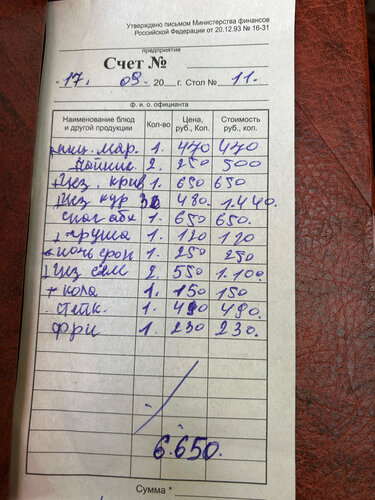 Утверждено письмом Министерства финансов
Российской Федерации от 20.12.93 № 16-31
предприятие
Счет №
17. 09. 20 г. Стол № 11.
ф. и. о. официанта
Наименование блюд и другой продукции Кол-во Цена, руб., Коп. Стоимость руб., коп.
пиц. мар. 1. 470 470
2. 250 500
хкз. крив 1. 650 650
хкз кур 3 480. 1.440.
спаг абя 1. 650 650.
груша 1. 120 120
1. 250 250
хкз сем 2. 550 1.100.
+ кола 1. 150 150
1. 490 490.
фри 1. 230 230.
6.650.
Сумма *